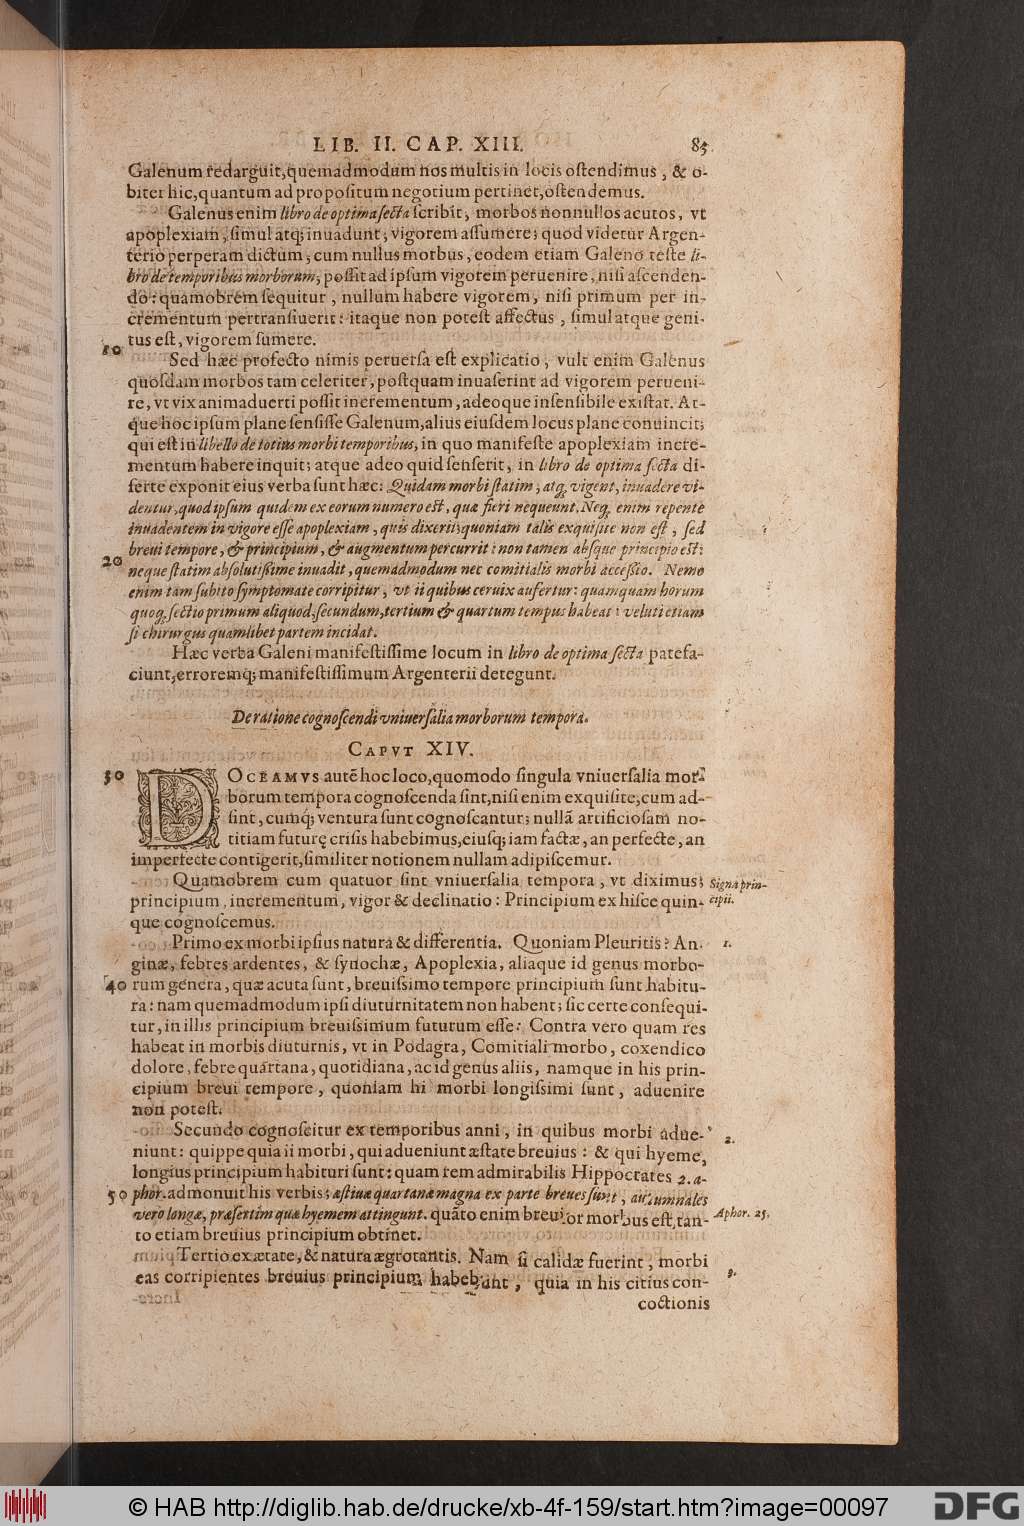 LIB. II. CAP. XIII. 85
Galenum redarguit, quemadmodum nos multis in locis ostendimus, & o-
biter hic, quantum ad propositum negotium pertinet, ostendemus.
Galenus enim libro de optima secta scribit, morbos nonnullos acutos, vt
apoplexiam, simul atq; inuadunt, vigorem assumere; quod videtur Argen-
terio perperam dictum, cum nullus morbus, eodem etiam Galeno teste li-
bro de temporibus morborum, possit ad ipsum vigorem peruenire, nisi ascenden-
do: quamobrem sequitur, nullum habere vigorem, nisi primum per in-
crementum pertransiuerit: itaque non potest affectus, simulatque geni-
10 tus est, vigorem sumere.
Sed hæc profecto nimis peruersa est explicatio, vult enim Galenus
quosdam morbos tam celeriter, postquam inuaserint ad vigorem perueni-
re, vt vix animaduerti possit incrementum, adeoque insensibile existat. At-
que hoc ipsum plane sensisse Galenum, alius eiusdem locus plane conuincit;
qui est in libello de totius morbi temporibus, in quo manifeste apoplexiam incre-
mentum habere inquit; atque adeo quid senserit, in libro de optima secta di-
serte exponit eius verba sunt hæc: Quidam morbi statim, atq; vigent, inuadere vi-
dentur, quod ipsum quidem ex eorum numero est, quæ fieri nequeunt. Neq; enim repente
inuadentem in vigore esse apoplexiam, quis dixerit; quoniam talis exquisite non est, sed
breui tempore, & principium, & augmentum percurrit: non tamen absque principio est:
20 neque statim absolutissime inuadit, quemadmodum nec comitialis morbi accessio. Nemo
enim tam subito symptomate corripitur, vt ii quibus ceruix aufertur: quamquam horum
quoq; sectio primum aliquod, secundum, tertium & quartum tempus habeat: veluti etiam
si chirurgus quamlibet partem incidat.
Hæc verba Galeni manifestissime locum in libro de optima secta patefa-
ciunt, erroremq; manifestissimum Argenterii detegunt.
De ratione cognoscendi vniuersalia morborum tempora.
CAPVT XIV.
30 DOCEAMVS autē hoc loco, quomodo singula vniuersalia mor-
borum tempora cognoscenda sint, nisi enim exquisite, cum ad-
sint, cumq; ventura sunt cognoscantur; nullā artificiosam no-
titiam futurę crisis habebimus, eiusq; iam factæ, an perfecte, an
imperfecte contigerit, similiter notionem nullam adipiscemur.
Quamobrem cum quatuor sint vniuersalia tempora, vt diximus; Signa prin-
principium, incrementum, vigor & declinatio: Principium ex hisce quin- cipii.
que cognoscemus.
Primo ex morbi ipsius natura & differentia. Quoniam Pleuritis? An- 1.
ginæ, febres ardentes, & synochæ, Apoplexia, aliaque id genus morbo-
40 rum genera, quæ acuta sunt, breuissimo tempore principium sunt habitu-
ra: nam quemadmodum ipsi diuturnitatem non habent; sic certe consequi-
tur, in illis principium breuissimum futurum esse: Contra vero quam res
habeat in morbis diuturnis, vt in Podagra, Comitiali morbo, coxendico
dolore, febre quartana, quotidiana, ac id genus aliis, namque in his prin-
cipium breui tempore, quoniam hi morbi longissimi sunt, aduenire
non potest.
Secundo cognoscitur ex temporibus anni, in quibus morbi adue- 2.
niunt: quippe quia ii morbi, qui adueniunt æstate breuius: & qui hyeme,
longius principium habituri sunt: quam rem admirabilis Hippocrates 2. a-
50 phor. admonuit his verbis; æstiuæ quartanæ magna ex parte breues sunt, autumnales
vero longæ, præsertim quæ hyemem attingunt. quāto enim breuior morbus est, tan- Aphor. 25.
to etiam breuius principium obtinet.
Tertio ex ætate, & natura ægrotantis. Nam si calidæ fuerint, morbi
eas corripientes breuius principium habebunt, quia in his citius con- 3.
coctionis
© HAB http://diglib.hab.de/drucke/xb-4f-159/start.htm?image=00097
DFG